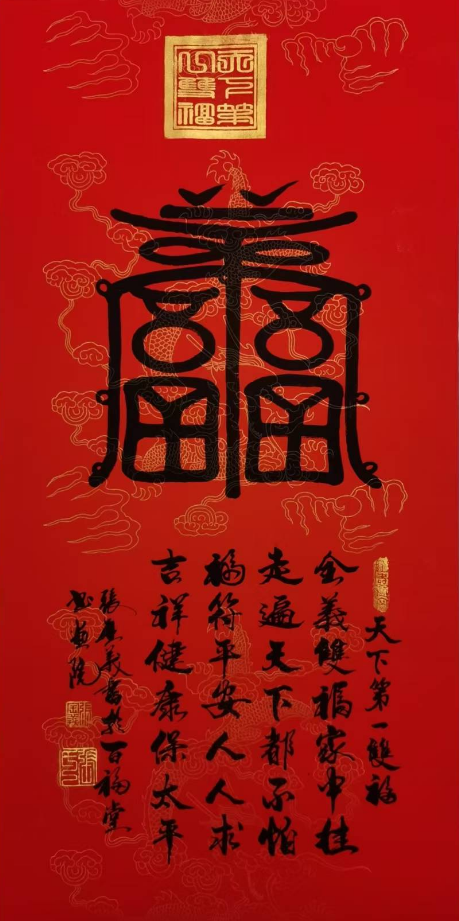 天下第一雙福
天下第一雙福
全義雙福家中挂
走遍天下都不怕
福符平安人人求
吉祥健康保太平
張全義書於百福堂
書畫院